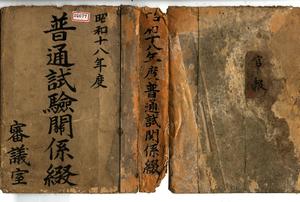 昭和十八年度
普通試驗關係綴
審議室
昭和十八年度普通試關係綴
官報